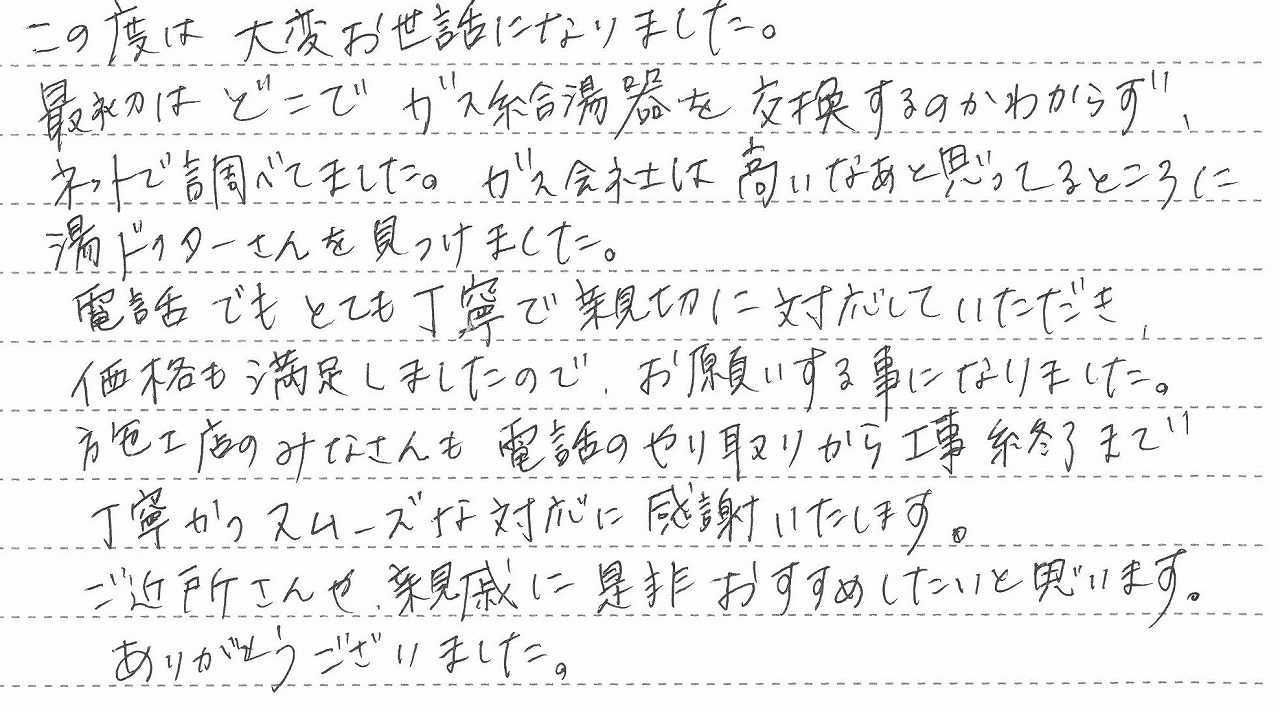 この度は 大変お世話になりました。
最初は どこで ガス給湯器を 交換するのかわからず、
ネットで調べてました。ガス会社は高いなあと思ってるところに
湯ドクターさんを見つけました。
電話でもとても丁寧で親切に対応していただき、
価格も満足しましたので、お願いする事になりました。
施工店のみなさんも電話のやり取りから工事終了まで
丁寧かつスムーズな対応に感謝いたします。
ご近所さんや、親戚に是非おすすめしたいと思います。
ありがとうございました。